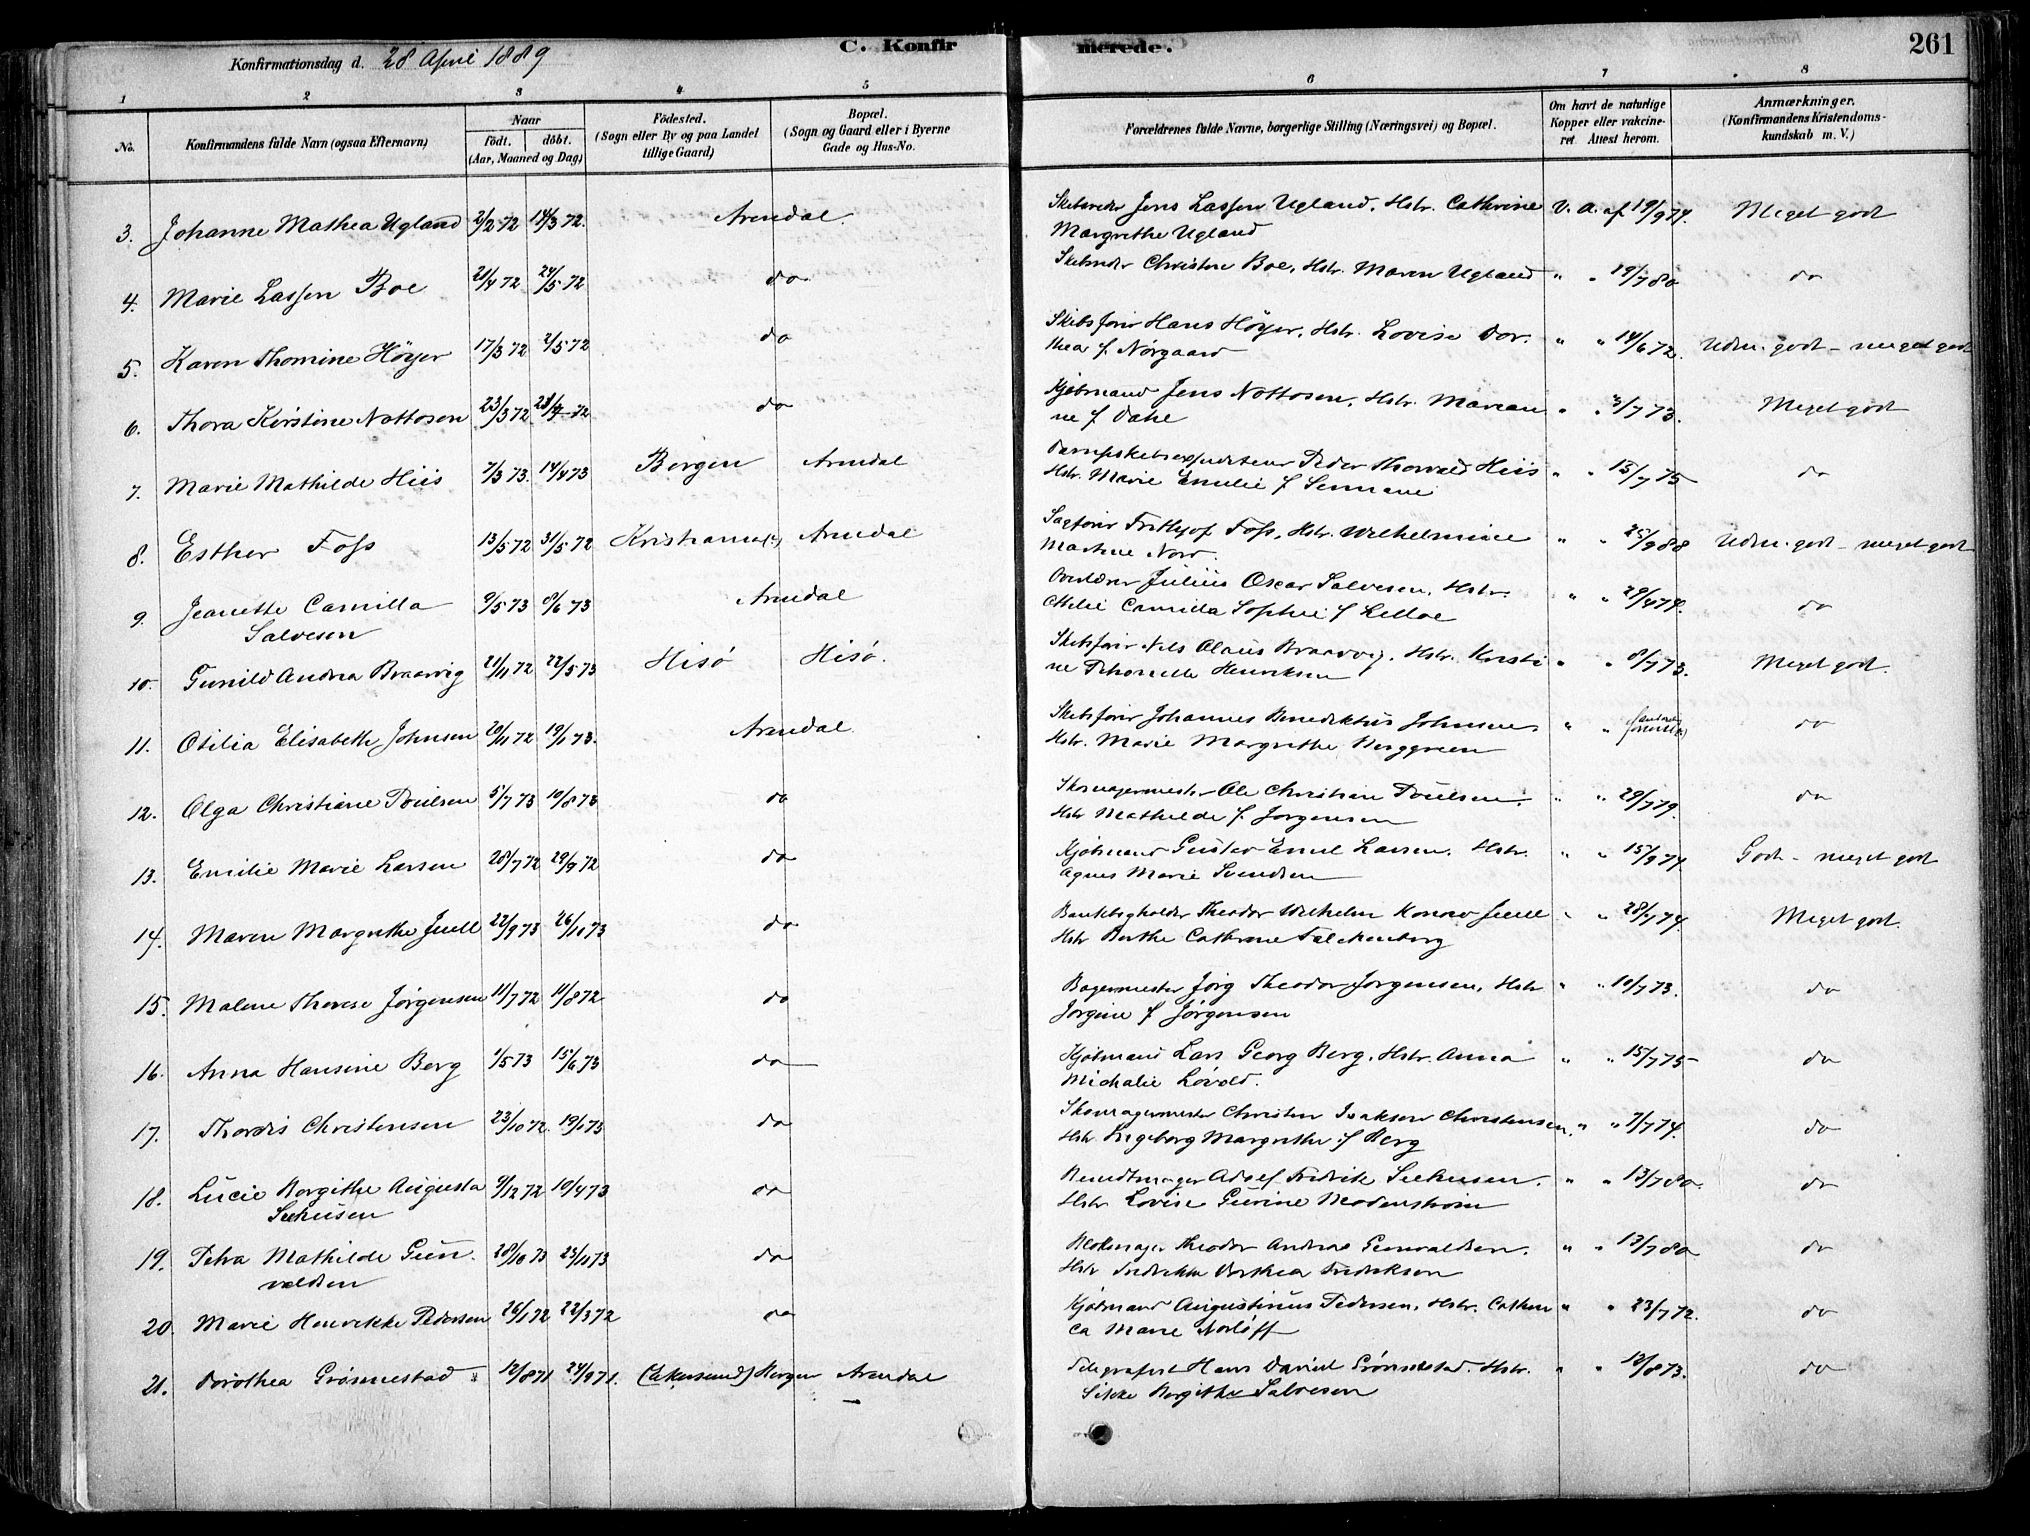 261
C. Konfirmerede.
Konfirmationsdag d. 28 April 1889
1 2 3 4 5 6 7 8
No.
Konfirmandens fulde Navn (ogsaa Efternavn)
Naar
födt. döbt.
(Aar, Maaned og Dag)
Födested.
(Sogn eller By og paa Landet
tillige Gaard)
Bopæl.
(Sogn og Gaard eller i Byerne
Gade og Hus-No.
Forældrenes fulde Navne, borgerlige Stilling (Næringsvei) og Bopæl.
Om havt de naturlige
Kopper eller vakcine-
ret Attest herom.
Anmærkninger.
(Konfirmandens Kristendoms-
kundskab m. V.)
3. Johanne Mathea Ugland 2/2 72 14/3 72. Arendal Skibsreder Jens Lassen Ugland, Hstr. Cathrine V. A. af 19/9 74. Meget godt
Margrethe Ugland
4. Marie Lassen Boe 21/4 72 24/5 72 do Skibsreder Christen Boe, Hstr. Maren Ugland " " 19/7 80 do
5. Karen Thomine Höyer 17/3 72 2/5 72 do Skibsfører Hans Höyer, Hstr. Lovise Dor- " " 14/6 72. Udm. godt - meget godt
thea f. Nørgaard
6. Thora Kirstine Nottosen 23/3 72 28/4 72 do Kjöbmand Jens Nottosen, Hstr. Marean " " 3/7 73. Meget godt
ne f. Dahl
7. Marie Mathilde Hiis 7/3 73. 14/4 73 Bergen Arendal Dampskibsexpediteur Peder Thorvald Hiis " " 15/7 75 do
Hstr. Marie Emilie f.
8. Esther Foss 13/5 72 31/5 72 Kristiania(?) Arendal Sagfører Frithjof Foss, Hstr. Wilhelmine " " 25/9 88 Udm. godt - meget godt
Martine
9. Jeanette Camilla 9/5 73 8/6 73 Arendal Overlærer Julius Oscar Salvesen, Hstr. " " 29/4 74. do
Salvesen Otilie Camilla Sophie f. Kelloe
10. Gunild Andrea Braavig 21/11 72 22/5 73 Hisö Hisö. Skibsfører Nils Olaus Braavig, Hstr. Kristi " " 8/7 73. Meget godt.
ne Henriksen
11. Otilia Elisabeth Johnsen 20/11 72 19/1 73. Arendal Skibsfører Johannes Benediktus Johnsen, " " do
Hstr. Marie Margrethe Berggreen
12. Olga Christiane Poulsen 5/7 73 10/8 73 do Skomagermester Ole Christian Poulsen. " " 29/7 79. do
Hstr Mathilde f. Jorgensen
13. Emilie Marie Larsen 28/7 72 29/9 72 do Kjöbmand Gustav Emil Larsen. Hstr. " " 15/9 74. Godt - meget godt
Agnes Marie Svendsen
14. Maren Margrethe Juell 22/9 73 26/10 73 do Bankbogholder Theodor Wilhelm Konow Juell " " 28/7 74. Meget godt.
Hstr Berthe Cathrine Falckenberg
15. Malene Therese Jörgensen 11/7 72 11/8 72 do Bagermester Jörg Theodor Jorgensen, Hstr " " 10/7 73. do
Jörgine f. Jörgensen
16. Anna Hansine Berg 1/5 73 15/6 73 do Kjöbmand Lars Georg Berg, Hstr. Anna " " 15/7 75 do
Michalie Lövold.
17. Thordis Christensen 23/10 72. 19/1 73 do Skomagermester Christen Isaksen Christensen, " " 7/7 74. do
Hstr Ingeborg Margrethe f. Berg
18. Lucie Borgithe Augusta 9/12 72 10/4 73 do Bundtmager Adolf Fredrik Seehusen. " " 13/7 80. do
Seehusen Hstr Lovise Gurine Modenstrøm
19. Petra Mathilde Gun- 28/10 73 23/11 73 do Blokmager Theodor Andreas Gunvaldsen. " " 13/7 80 do
valdsen Hstr Fredrikke Dorthea Fredriksen
20. Marie Henrikke Pedersen 26/1 72 22/3 72 do Kjöbmand Augustinus Pedersen, Hstr. Cathin " " 23/7 72. do
ca Marie Norløff
21. Dorothea Grösnestad 12/8 71 24/9 71. (Akersund) Bergen Arendal Telegrafist Hans David Grönsestad. Hstr. " " 13/8 73. do
Sikke Bergithe Salvesen